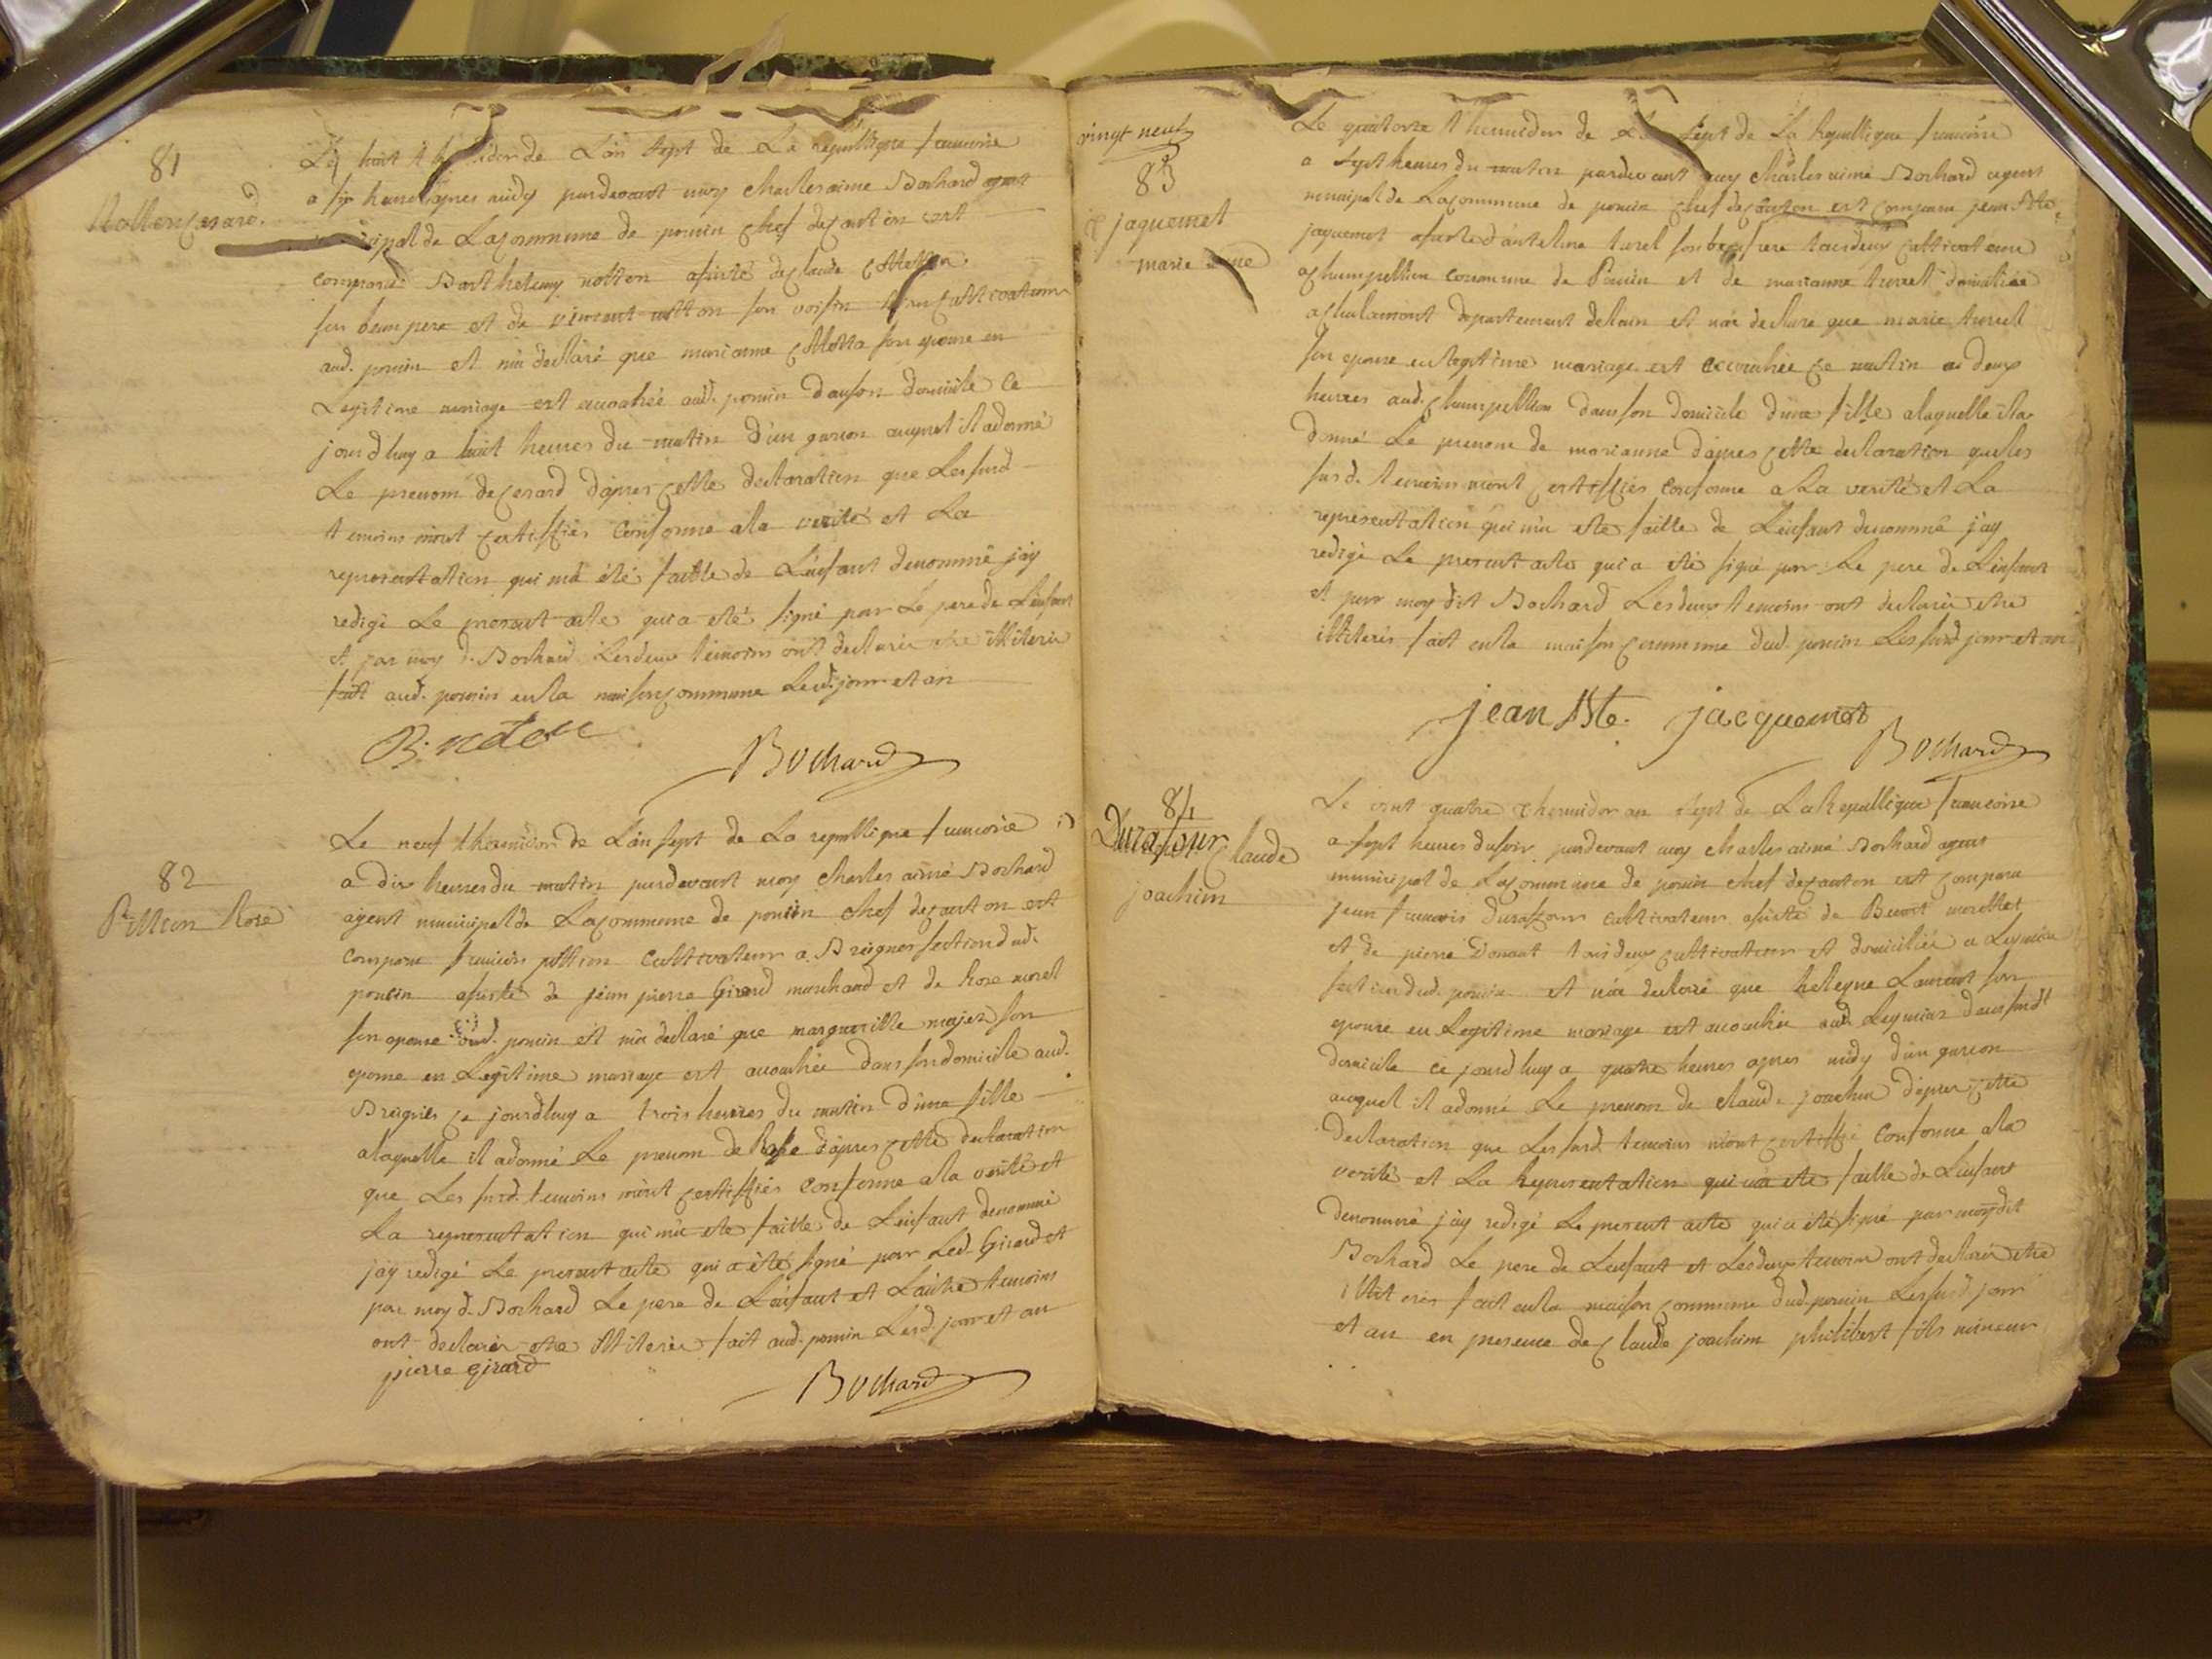 81
Notton Cesard.
Le huit thermidor de L'an sept de La republique francoise
a six heures apres midy pardevant moy charles aime Bochard agent
municipal de La commune de poncin chef de canton est
comparu Barthelemy notton assisté de claude
son beau pere et de vincent notton son voisin tous cultivateurs
aud. poncin et m'a declaré que marianne son epouse en
Legitime mariage est accouchée aud. poncin dans son domicile ce
jourd'huy a huit heures du matin d'un garcon auquel il a donné
Le prenom de cesard d'apres cette declaration que Les susd.
temoins m'ont certiffiés conforme a la verité et La
representation qui m'a été faitte de L'enfant denommé j'ay
redigé Le present acte qui a eté signé par Le pere de L'enfant
et par moy d. Bochard Les deux temoins ont declarés etre illiterés
fait aud. poncin en la maison commune Lesd. jour et an
B. notton
Bochard
82
Pittion Rose
Le neuf thermidor de L'an sept de La republique francoise
a dix heures du matin pardevant moy charles aimé Bochard
agent municipal de La commune de poncin chef de canton est
comparu francois pittion cultivateur a Breignes section dud.
poncin assisté de jean pierre Girard marchand et de Rose morel
son epouse aud. poncin et m'a declaré que margueritte son
epouse en Legitime mariage est accouchée dans son domicile aud.
Breignes ce jourd'huy a trois heures du matin d'une fille
a laquelle il a donné Le prenom de Rose d'apres cette declaration
que Les susd. temoins m'ont certiffiés conforme a la verité et
La representation qui m'a ete faitte de L'enfant denommé
j'ay redigé Le present acte qui a été signé par Led. Girard et
par moy d. Bochard Le pere de L'enfant et L'autre temoins
ont declarés etre illiterés fait aud. poncin Lesd. jour et an
pierre girard
Bochard
vingt neuf
83
jaquemet
marie anne
Le quatorze thermidor de L'an sept de La Republique francoise
a sept heures du matin pardevant moy charles aimé Bochard agent
municipal de La commune de poncin chef de canton est comparu jean Bte
jaquemet assisté d'antelme turel son beau frere tous deux cultivateurs
a champellion commune de Poncin et de marianne turrel domiciliée
a chalamont departement de L'ain et m'a declaré que marie turrel
son epouse en Legitime mariage est accouchée ce matin a deux
heures aud. champellion dans son domicile d'une fille a laquelle il a
donné Le prenom de marianne d'apres cette declaration que les
susd. temoins m'ont certiffiés conforme a La verité et La
representation qui m'a eté faitte de L'enfant denommé j'ay
redigé Le present acte qui a eté signé par Le pere de L'enfant
et par moy dit Bochard Les deux temoins ont declarés etre
illiterés fait en la maison commune dud. poncin Les susd jour et an
jean Bte. jacquemet
Bochard
84
Durafour Claude
joachim
Le vint quatre thermidor an sept de La Republique francoise
a sept heures du soir pardevant moy charles aimé Bochard agent
municipal de La commune de poncin chef de canton est comparu
jean francois durafour cultivateur assisté de Benoit morellet
et de pierre Donnant tous deux cultivateurs et domiciliés a Leymiat
section dud. poncin et m'a declaré que heleyne Laurent son
epouse en Legitime mariage est accouchée aud. Leymiat dans sond.
domicile ce jourd'huy a quatre heures apres midy d'un garcon
auquel il a donné Le prenom de claude joachim d'apres cette
declaration que Les susd. temoins m'ont certiffié conforme a la
verité et La Representation qui m'a eté faitte de L'enfant
denommé j'ay redigé Le present acte qui a été signé par moy dit
Bochard Le pere de L'enfant et Les deux temoins ont declarés etre
illiterés fait en la maison commune dud. poncin Les susd. jour
et an en presence de claude joachim philibert fils mineur